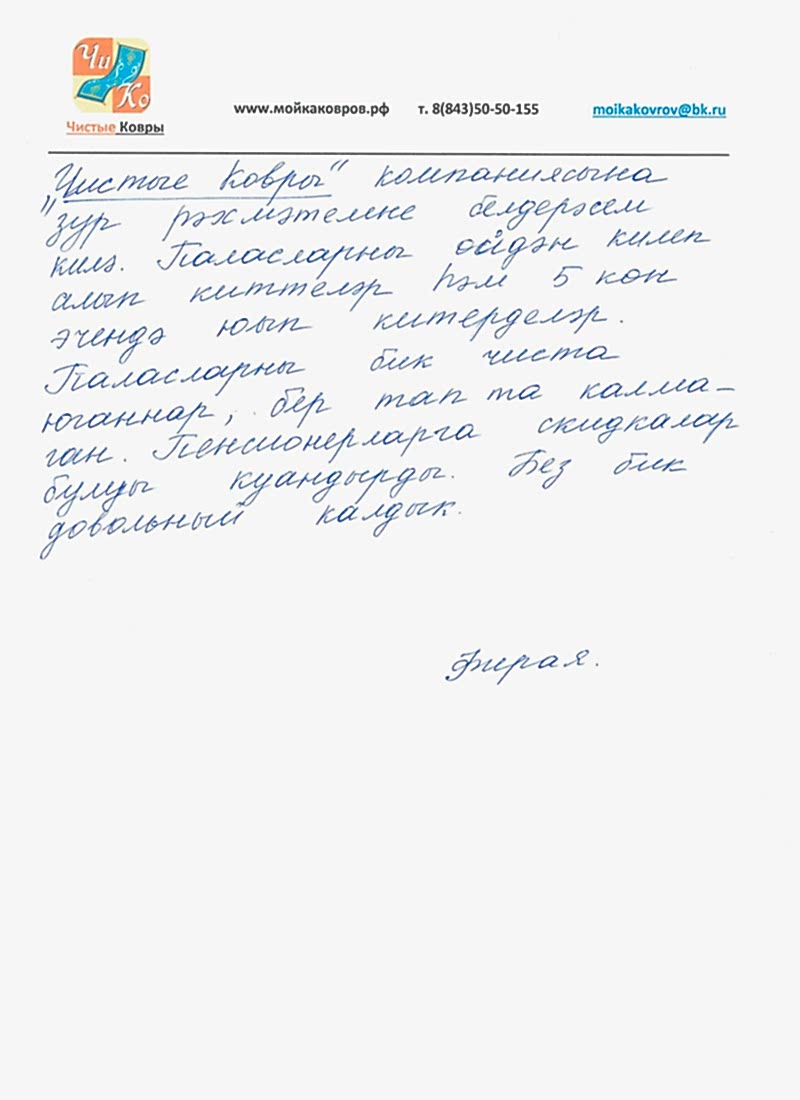 Чи
Ко
Чистые Ковры
www.мойкаковров.рф т. 8(843)50-50-155 moikakovrov@bk.ru
„Чистые Ковры“ компаниясына
зур рәхмәтемне белдерәсем
килә. Паласларны өйдән килеп
алып киттеләр һәм 5 көн
эчендә юып китерделәр.
Паласларны бик чиста
юганнар, бер тап та калма-
ган. Пенсионерларга скидкалар
булуы куандырды. Без бик
довольный калдык.
Фирая.